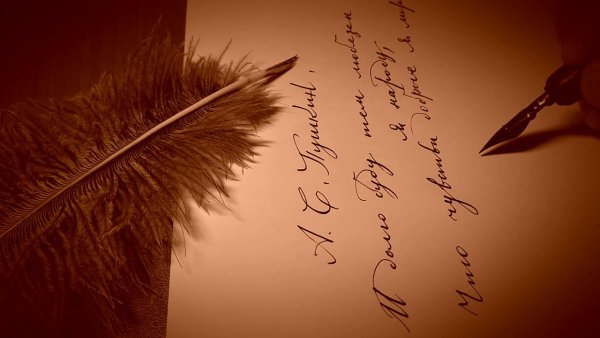 А. С. Пушкин,
И долго буду тем любезен
я народу,
Что чувства доброе я лир